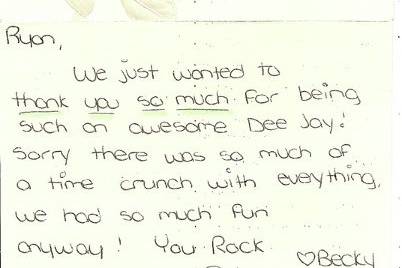 Ryan,
We just wanted to
thank you so much for being
such an awesome Dee Jay!
Sorry there was so much of
a time crunch with everything,
we had so much fun
anyway! You Rock
♡Becky